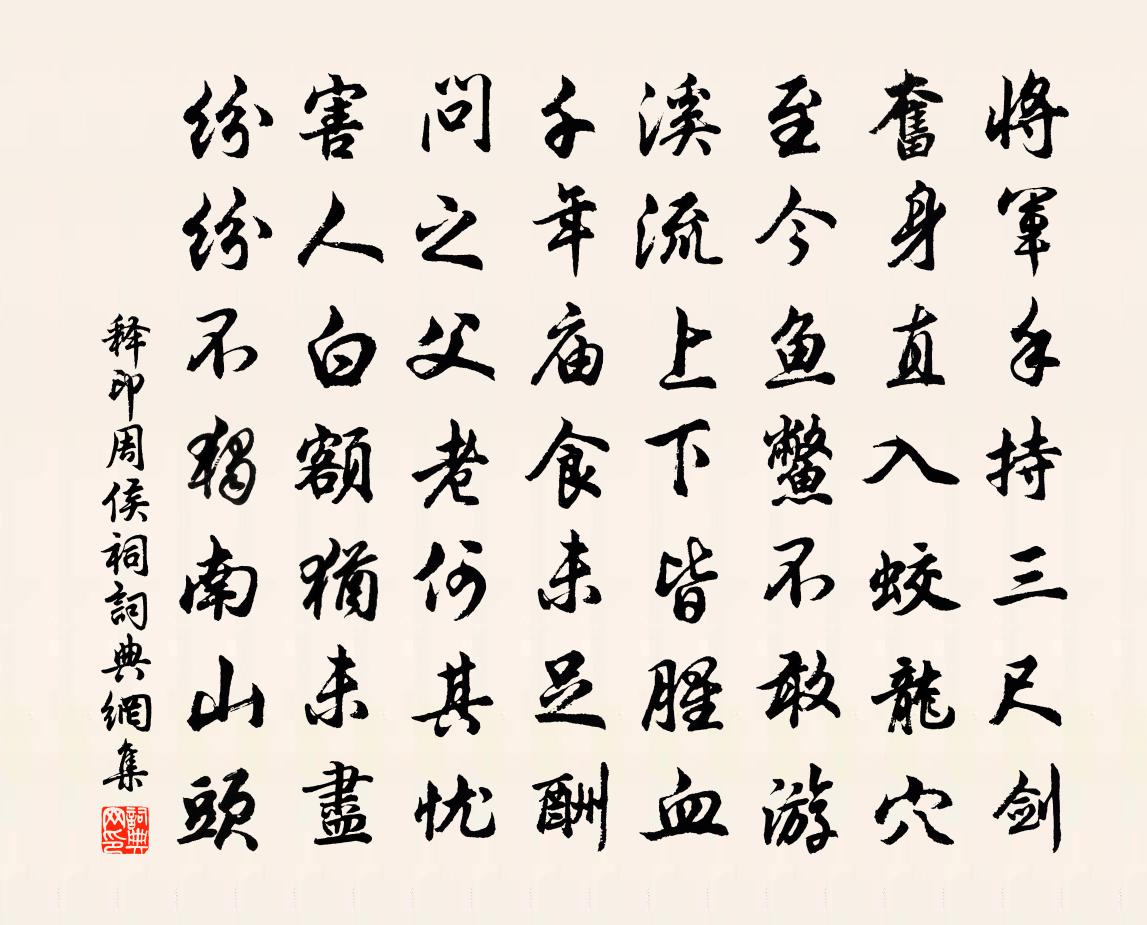 將軍手持三尺剑
奮身直入蛟龍穴
至今鱼鱉不敢游
溪流上下皆腥血
千年庙食未足酬
問之父老何其忧
害人白額猶未盡
纷纷不獨南山頭
释印周侯祠詞典網集
詞典网印